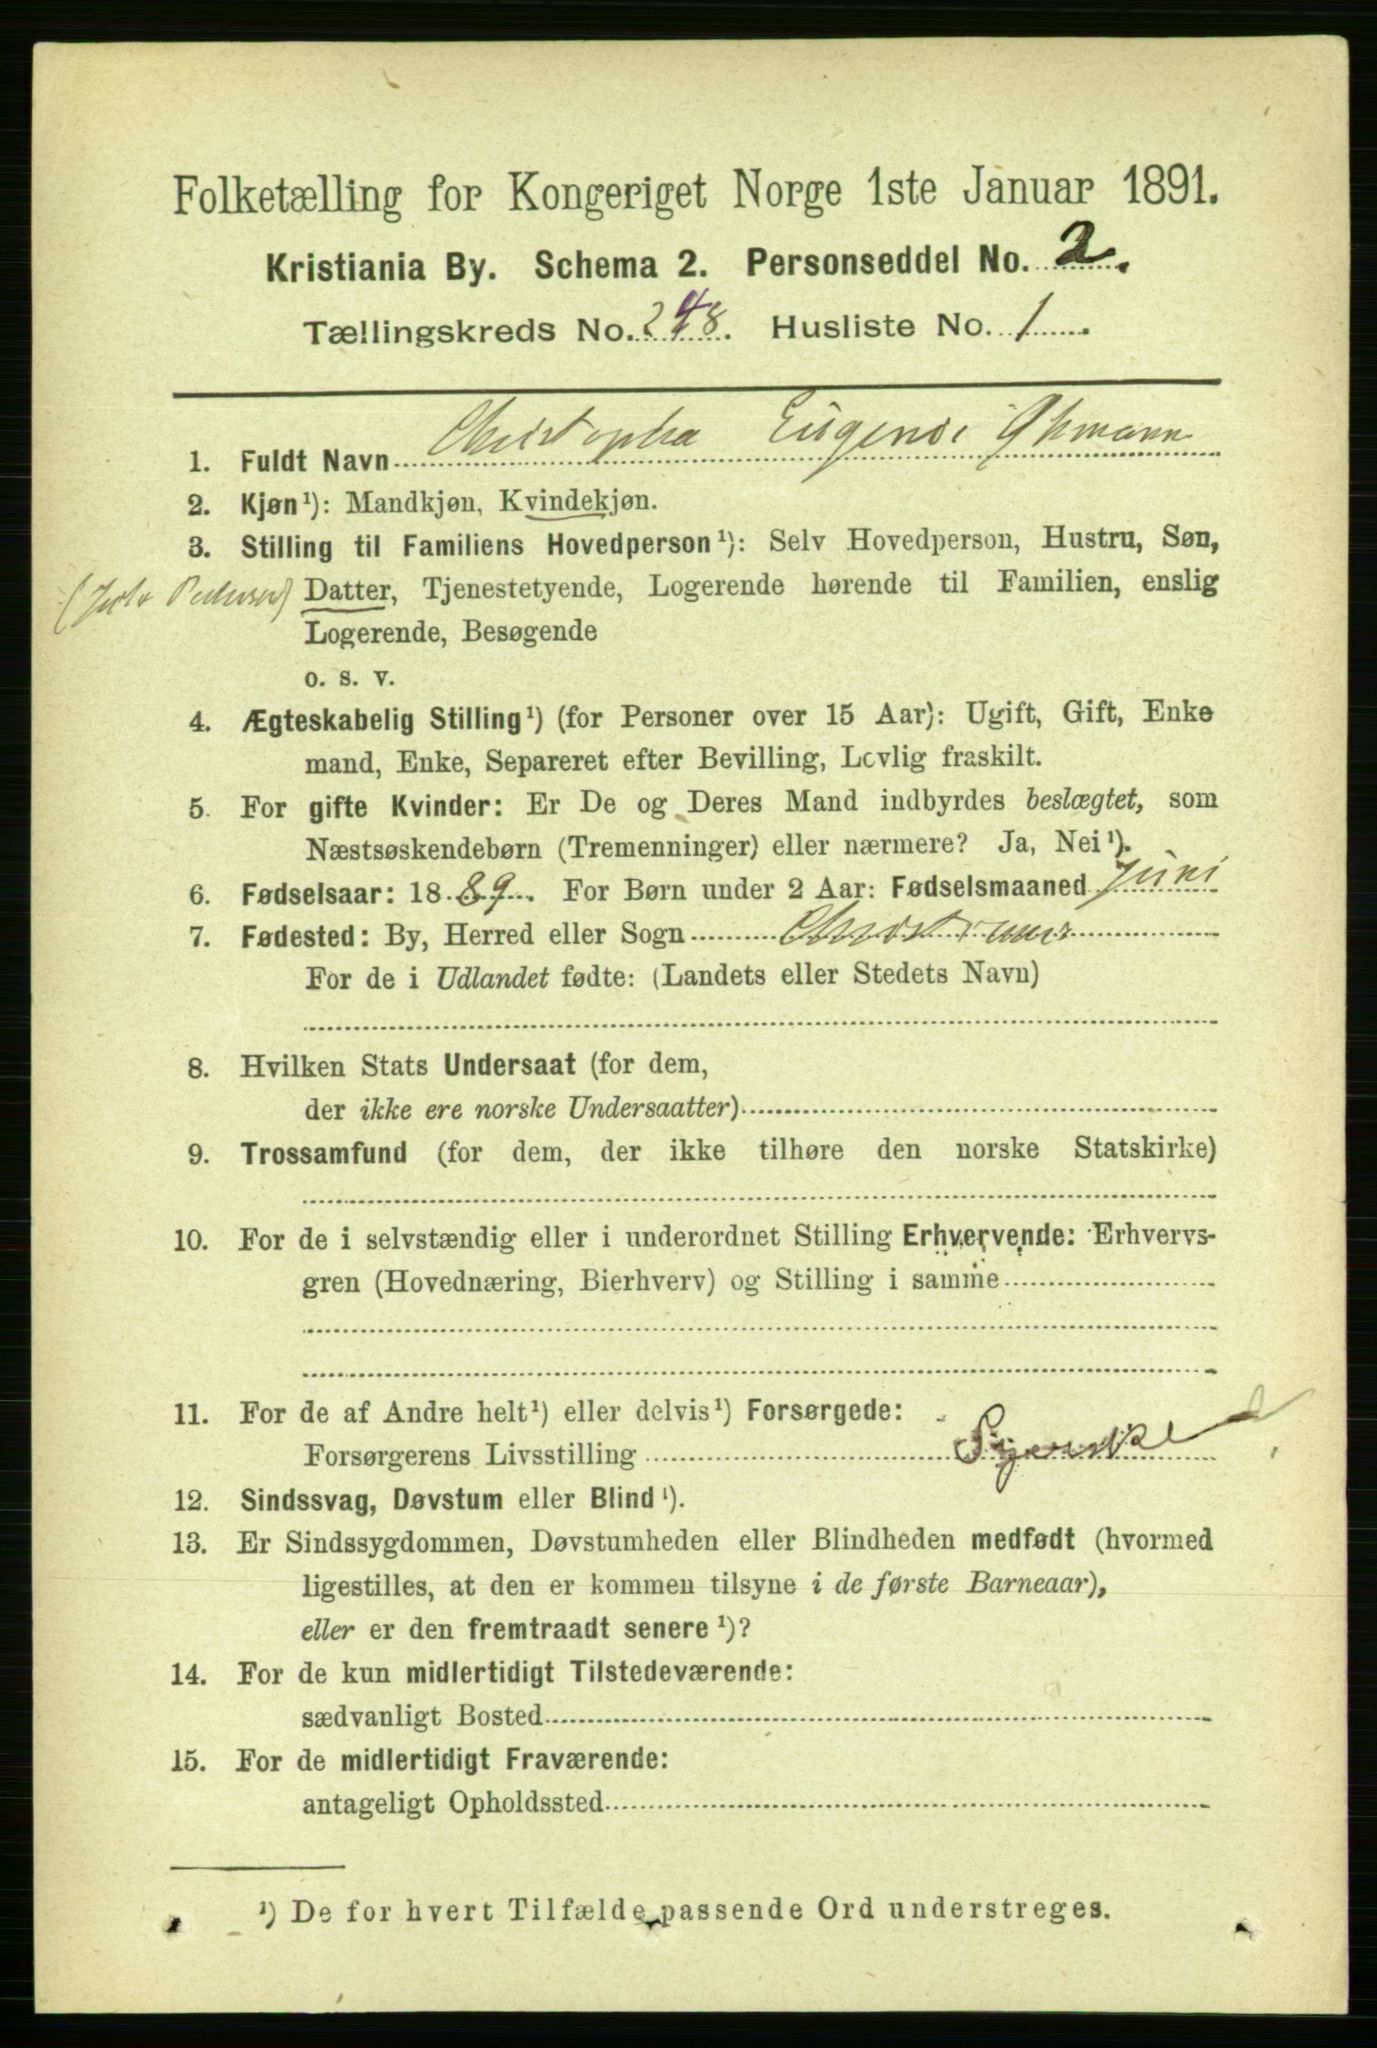 Folketælling for Kongeriget Norge 1ste Januar 1891.
Kristiania By. Schema 2. Personseddel No. 2.
Tællingskreds No. 248. Husliste No. 1
1. Fuldt Navn Christopha
2. Kjøn¹): Mandkjøn, Kvindekjøn.
3. Stilling til Familiens Hovedperson¹): Selv Hovedperson, Hustru, Søn,
Datter, Tjenestetyende, Logerende hørende til Familien, enslig
Logerende, Besøgende
o. s. v.
4. Ægteskabelig Stilling¹) (for Personer over 15 Aar): Ugift, Gift, Enke
mand, Enke, Separeret efter Bevilling, Lovlig fraskilt.
5. For gifte Kvinder: Er De og Deres Mand indbyrdes beslægtet, som
Næstsøskendebørn (Tremenninger) eller nærmere? Ja, Nei¹).
6. Fødselsaar: 1889. For Børn under 2 Aar: Fødselsmaaned Juni
7. Fødested: By, Herred eller Sogn
For de i Udlandet fødte: (Landets eller Stedets Navn)
8. Hvilken Stats Undersaat (for dem,
der ikke ere norske Undersaatter)
9. Trossamfund (for dem, der ikke tilhøre den norske Statskirke)
10. For de i selvstændig eller i underordnet Stilling Erhvervende: Erhvervs-
gren (Hovednæring, Bierhverv) og Stilling i samme
11. For de af Andre helt¹) eller delvis¹) Forsørgede:
Forsørgerens Livsstilling
12. Sindssvag, Døvstum eller Blind¹).
13. Er Sindssygdommen, Døvstumheden eller Blindheden medfødt (hvormed
ligestilles, at den er kommen tilsyne i de første Barneaar),
eller er den fremtraadt senere¹)?
14. For de kun midlertidigt Tilstedeværende:
sædvanligt Bosted
15. For de midlertidigt Fraværende:
antageligt Opholdssted
¹) De for hvert Tilfælde passende Ord understreges.